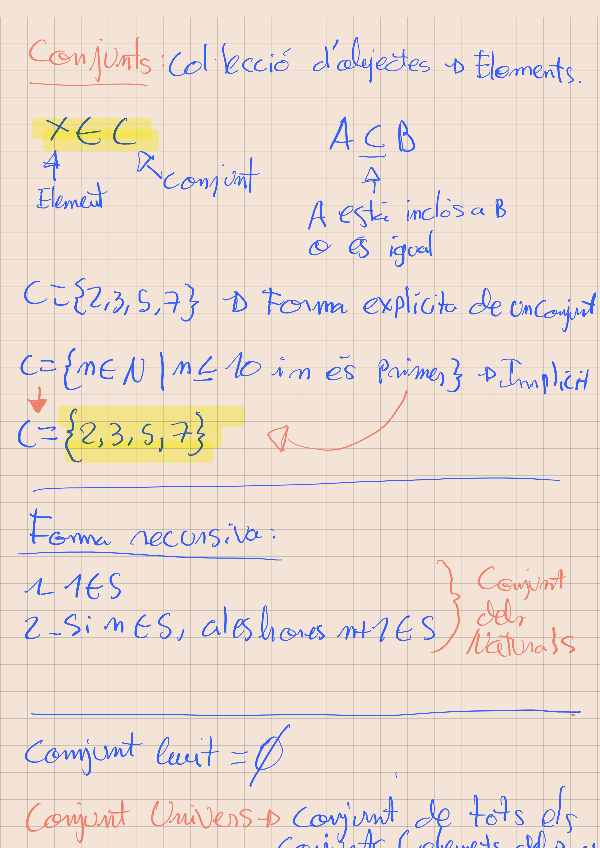 Conjunts: Col·lecció d'objectes → Elements.
x ∈ C
A ⊆ B
Element
conjunt
A està inclòs a B
o és igual
C = {2,3,5,7} → Forma explícita de un Conjunt
C = {n ∈ N | n ≤ 10 i n és Primer} → Implícit
C = {2,3,5,7}
Forma recursiva:
1_ 1 ∈ S
2_ Si n ∈ S, aleshores n+1 ∈ S
Conjunt
dels
Naturals
Conjunt buit = ∅
Conjunt Univers → conjunt de tots els